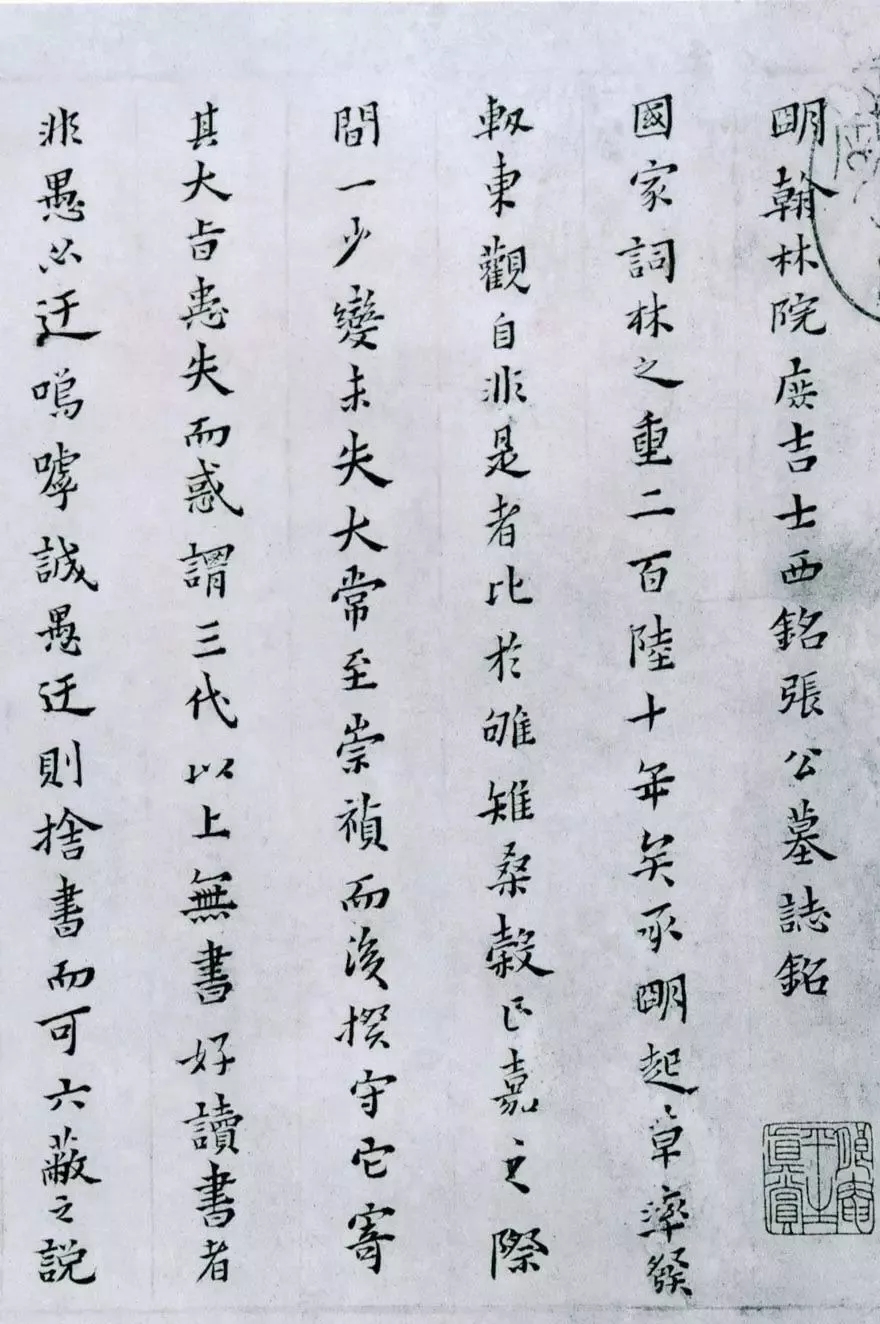 明翰林院庶吉士西銘張公墓誌銘
國家詞林之重二百陸十年矣承明起草率發
軔東觀自非是者比於雊雉桑穀正嘉之際
間一少變未失大常至崇禎而後揆守它寄
其大旨患失而惑謂三代以上無書好讀書者
非愚必迂嗚嘑誠愚迂則捨書而可六蔽之說